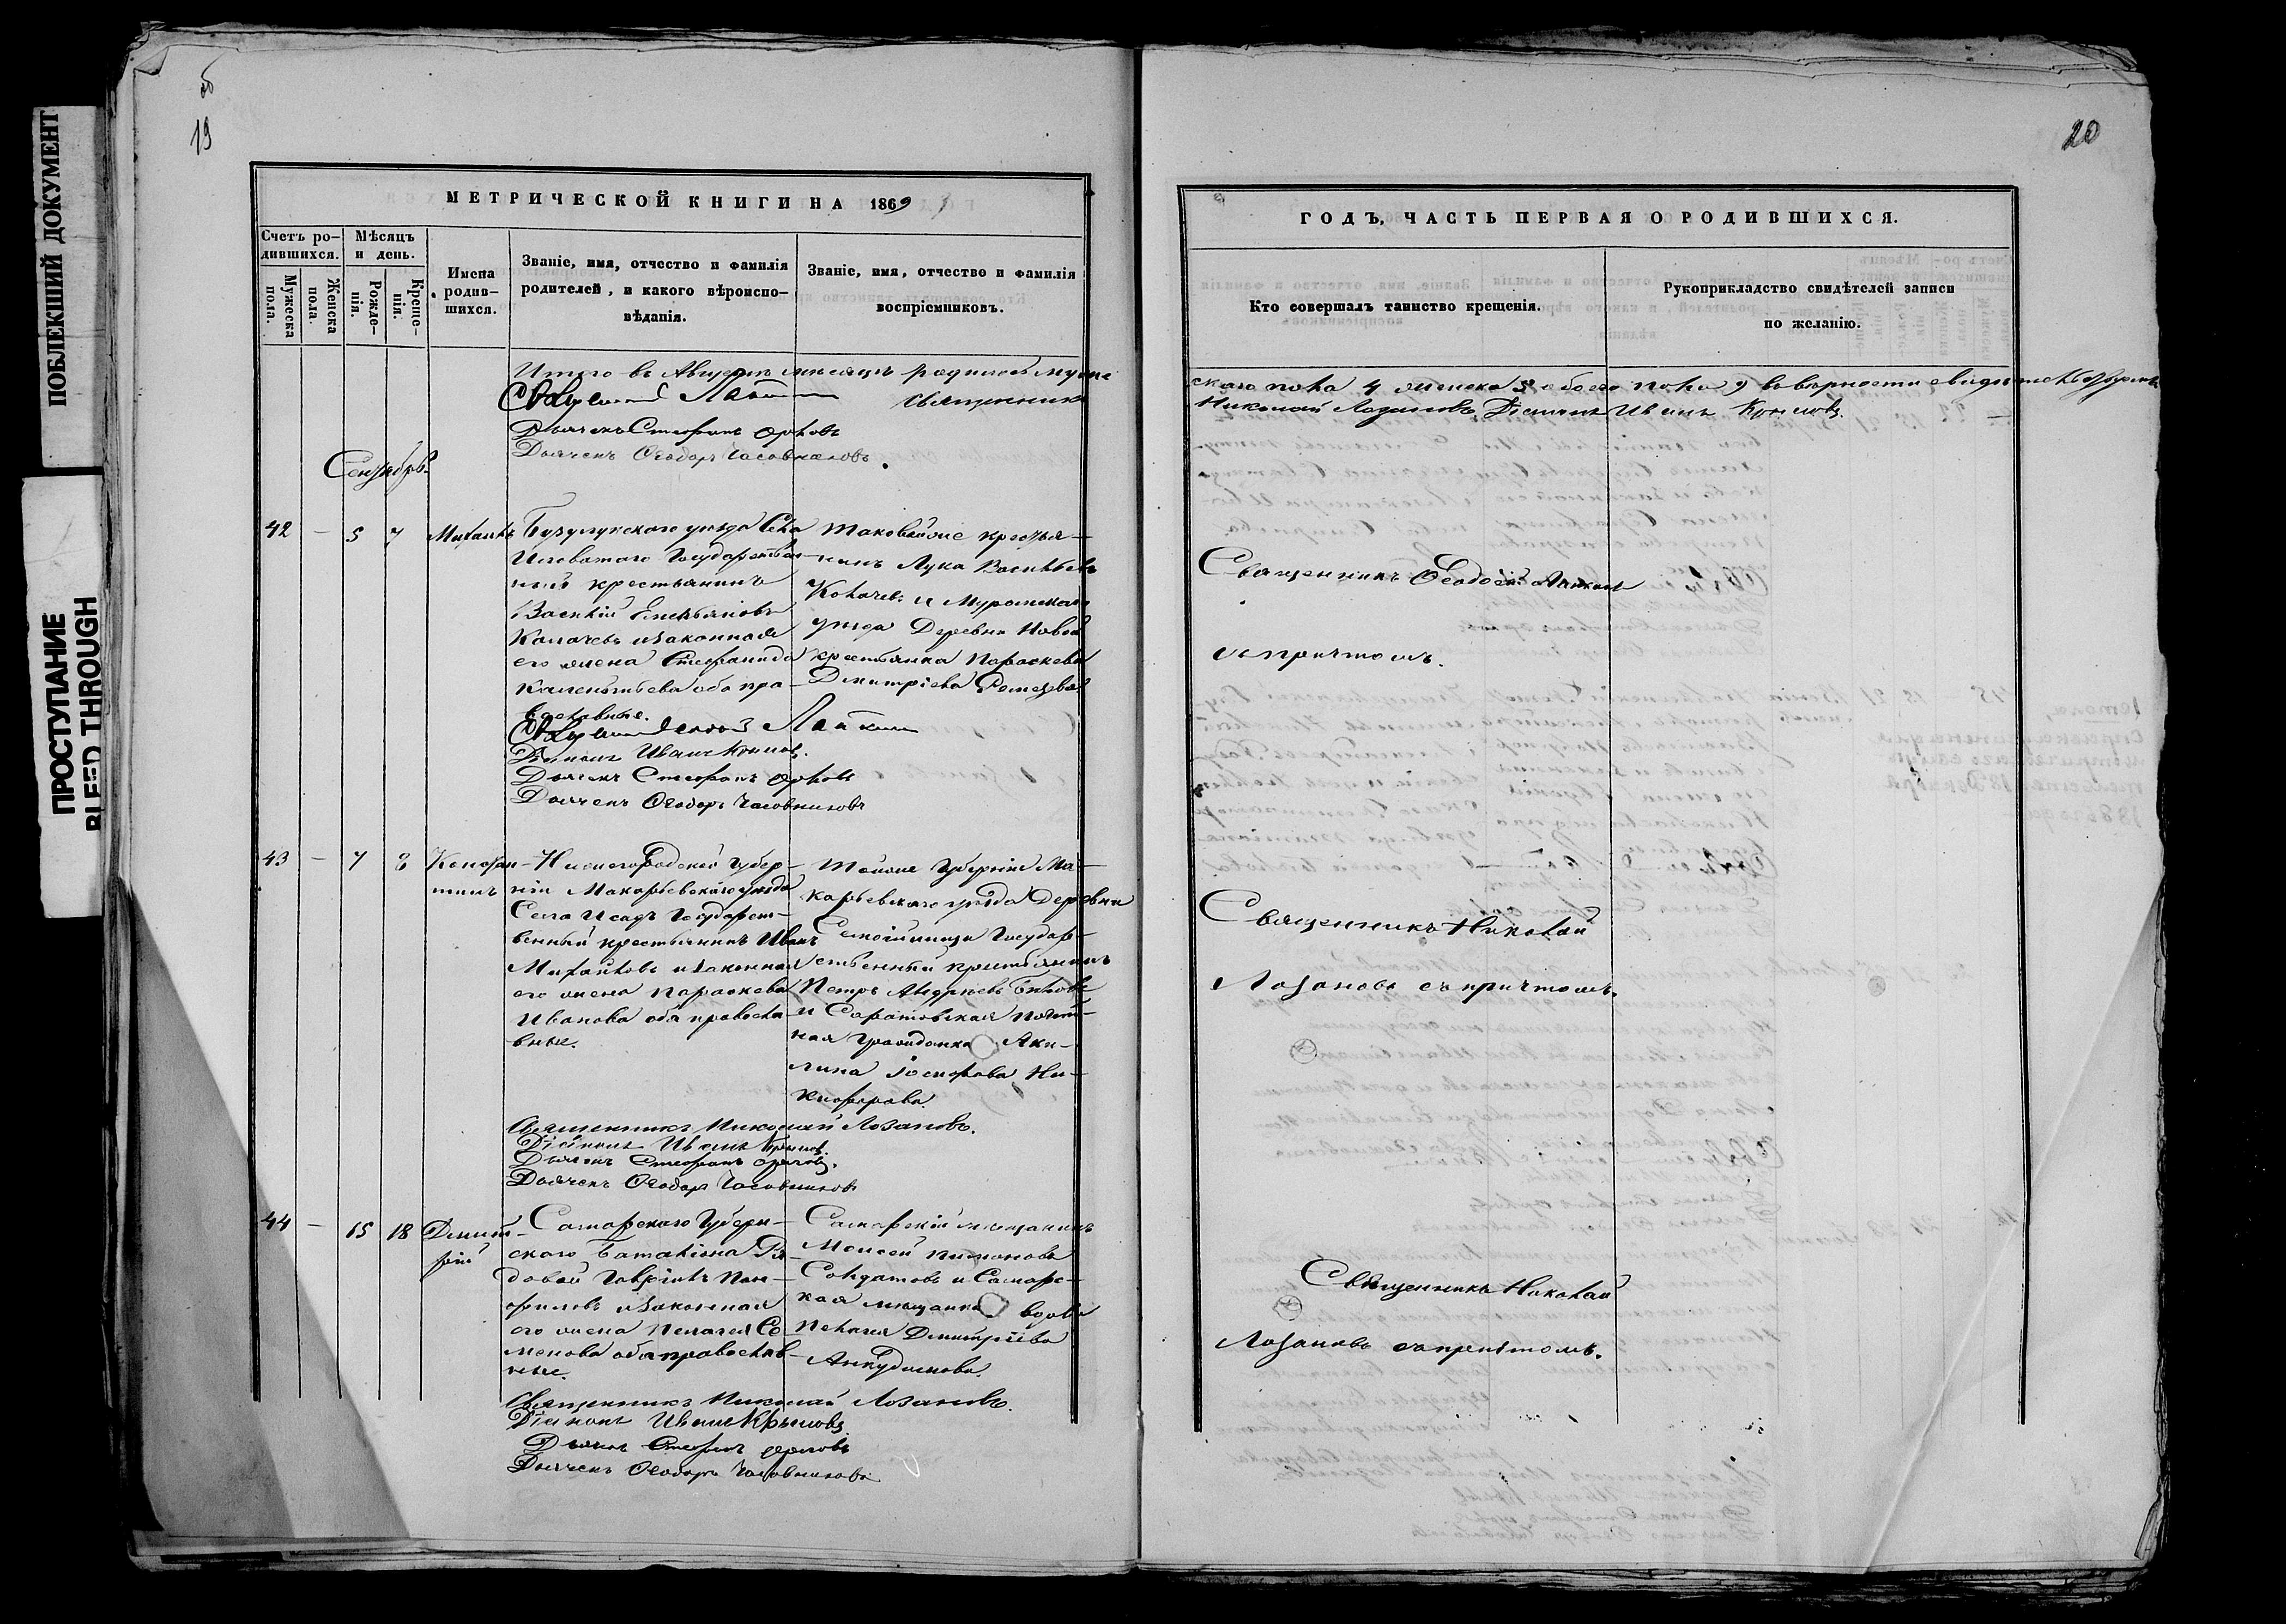 ПОБЛЕКШИЙ ДОКУМЕНТ
ПРОСТУПАНИЕ
BLEED THROUGH
об
19
МЕТРИЧЕСКОЙ КНИГИ НА 1869
Счетъ ро-
дившихся.
Мужеска
пола.
Женска
пола.
Мѣсяцъ
и день.
Рожде-
нія.
Креще-
нія.
Имена
родив-
шихся.
Званіе, имя, отчество и фамилія
родителей, и какого вѣроиспо-
вѣданія.
Званіе, имя, отчество и фамилія
воспріемниковъ.
Итого въ Августѣ мѣсяцѣ родилось муже
Священникъ
Дьячекъ Стефанъ Орловъ
Дьячекъ Ѳеодоръ Часовниковъ.
Сентябрь
42 — 5 7 Михаилъ
Бузулукскаго уѣзда Села
Государствен-
ный крестьянинъ
Василій Емельяновъ
Калачевъ и законная
его жена Стефанида
оба пра-
вославные.
Діаконъ Иванъ Крыловъ
Дьячекъ Стефанъ Орловъ
Дьячекъ Ѳеодоръ Часовниковъ
Таковойже крестья-
нинъ Лука Васильевъ
Калачевъ и Муромскаго
уѣзда Деревни Новой
крестьянка Параскева
Дмитріева
43 — 7 8 Констан-
тинъ
Нижегородской Губер-
ніи Макарьевскаго уѣзда
Села Исадъ Государст-
венный крестьянинъ Иванъ
Михайловъ и законная
его жена Параскева
Иванова оба правосла-
вные.
Тойже Губерніи Ма-
карьевскаго уѣзда Деревни
Государ-
ственный крестьянинъ
Петръ Андреевъ Бѣловъ
и Саратовская почет-
ная гражданка Аки-
лина Іосифова Ни-
кифорова.
Священникъ Николай Лозановъ.
Діаконъ Иванъ Крыловъ.
Дьячекъ Стефанъ Орловъ.
Дьячекъ Ѳеодоръ Часовниковъ
44 — 15 18 Димит-
рій
Самарскаго Губерн-
скаго Баталіона Ря-
довой Гавріилъ Пан-
филовъ и законная
его жена Пелагея Се
менова оба православ-
ные.
Самарскій мѣщанинъ
Моисей Пимоновъ
Солдатовъ и Самарс-
кая мѣщанка вдова
Пелагея Димитріева
Анкудимова.
Священникъ Николай Лозановъ.
Діаконъ Иванъ Крыловъ
Дьячекъ Стефанъ Орловъ
Дьячекъ Ѳеодоръ Часовниковъ
20
ГОДЪ, ЧАСТЬ ПЕРВАЯ О РОДИВШИХСЯ.
Кто совершалъ таинство крещенія.
Рукоприкладство свидѣтелей записи
по желанію.
скаго пола 4 женска 5 обоего пола 9 въ вѣрности
Николай Лозановъ Діаконъ Иванъ Крыловъ.
Священникъ Ѳеодосій
съ причтомъ.
Священникъ Николай
Лозановъ съ причтомъ.
Священникъ Николай
Лозановъ съ причтомъ.